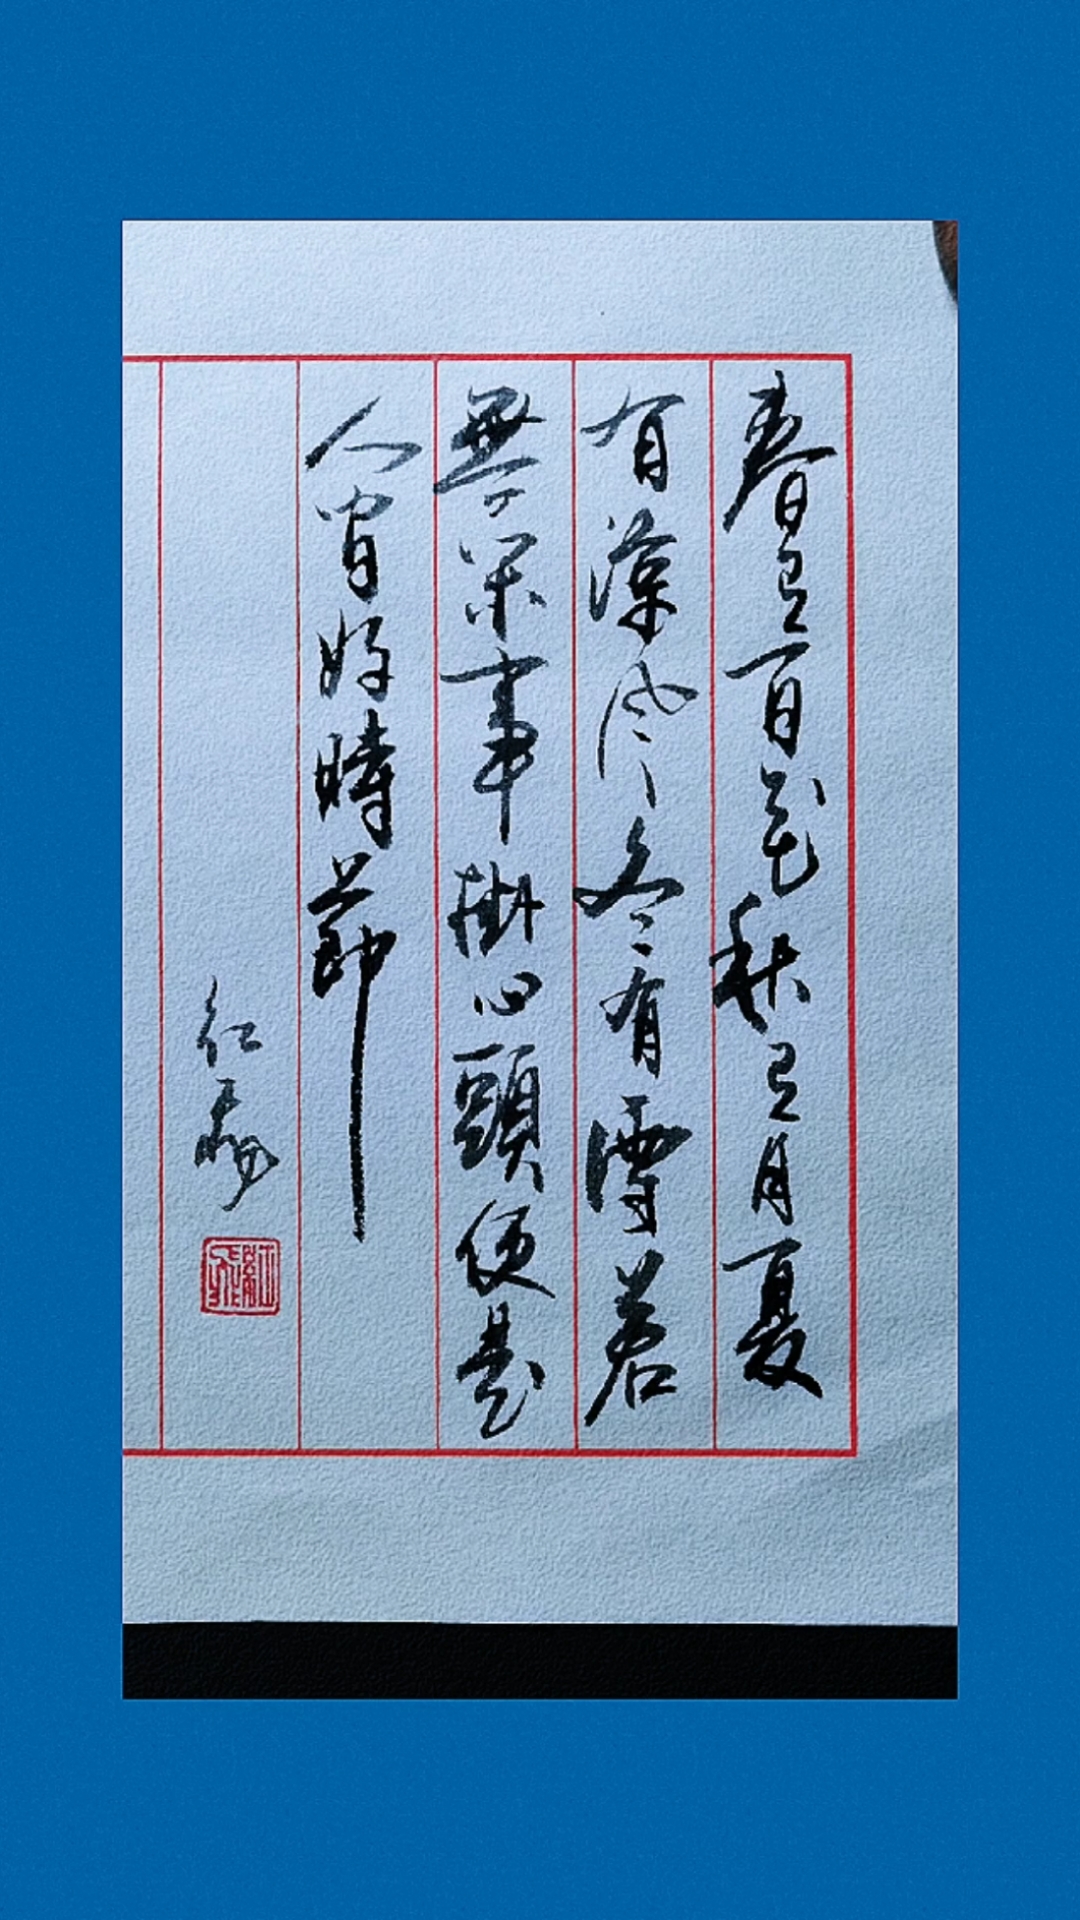 春有百花秋有月夏
有涼風冬有雪若
無閑事掛心頭便是
人間好時節